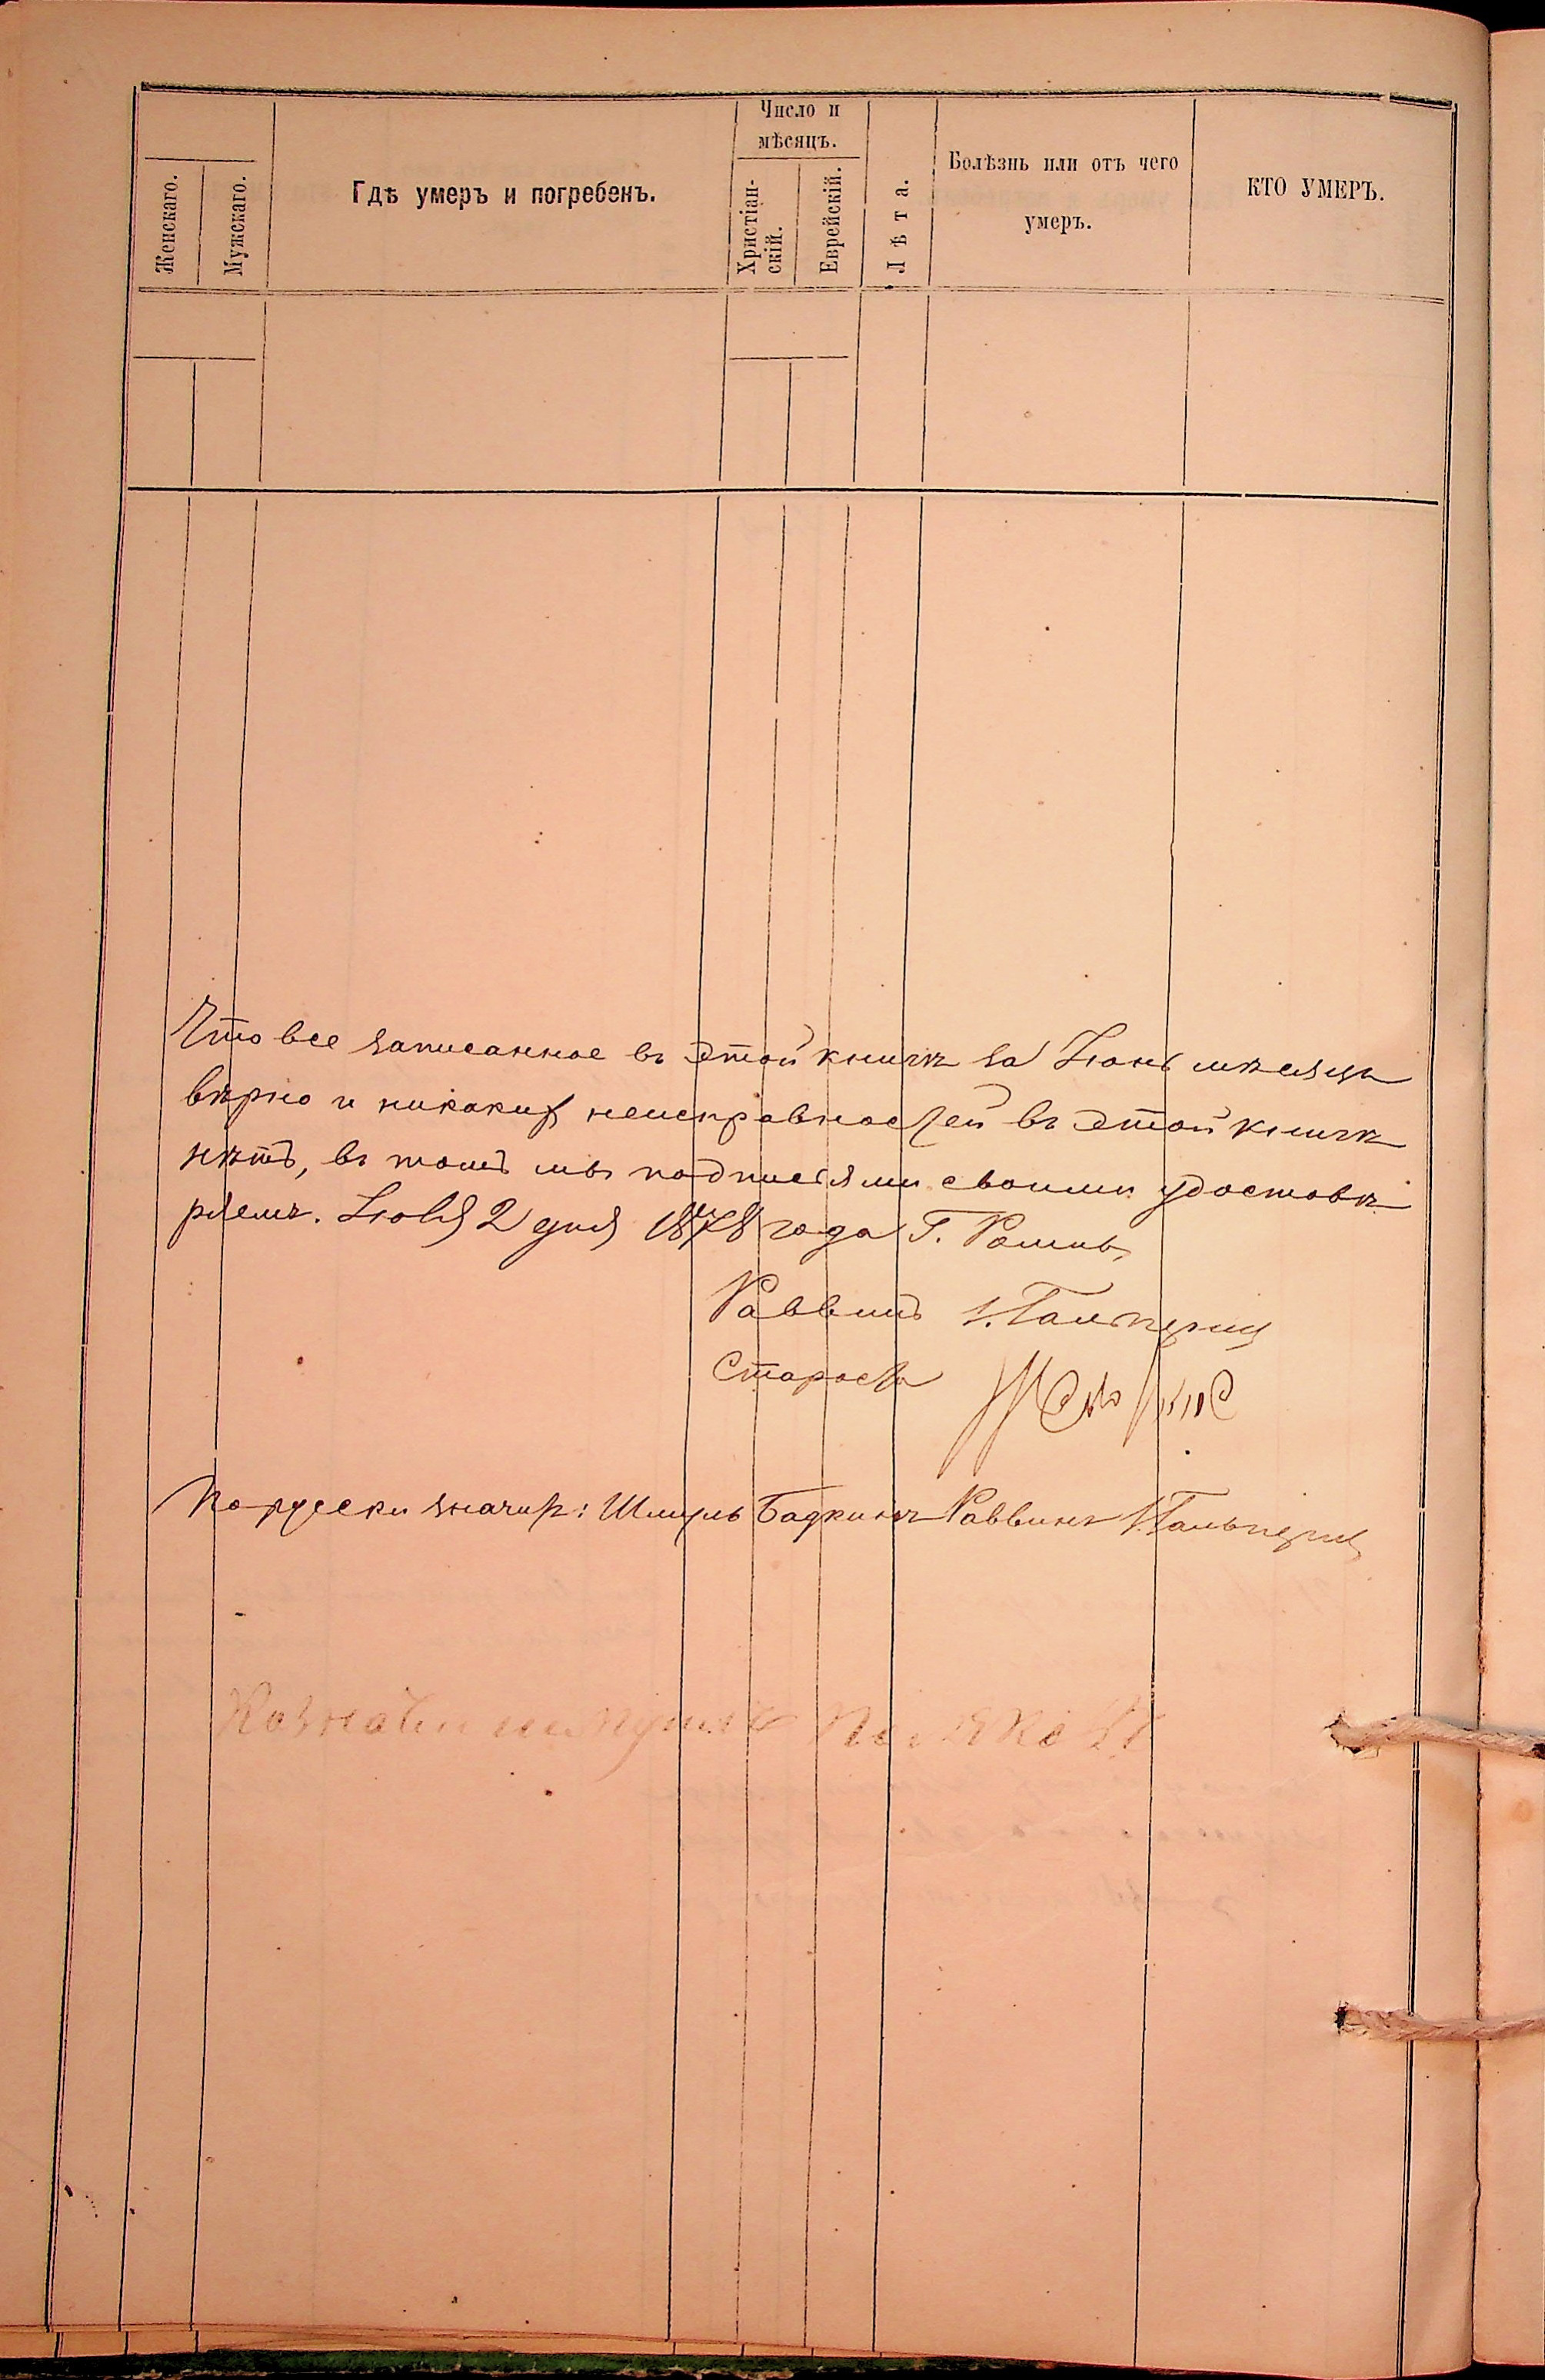 Женскаго.
Мужскаго.
Гдѣ умеръ и погребенъ.
Число и
мѣсяцъ.
Христіан-
скій.
Еврейскій.
Лѣта.
Болѣзнь или отъ чего
умеръ.
КТО УМЕРЪ.
Что все записанное въ этой книгѣ за Іюнь мѣсяцъ
вѣрно и никакихъ неисправностей въ этой книгѣ
нѣтъ, въ томъ мы подписями своими удостовѣ
ряемъ. Іюля 2 дня 1878 года Г. Ромны
Раввинъ Гальперинъ
Староста
По русски значитъ: Шмуль Раввинъ Гальперинъ